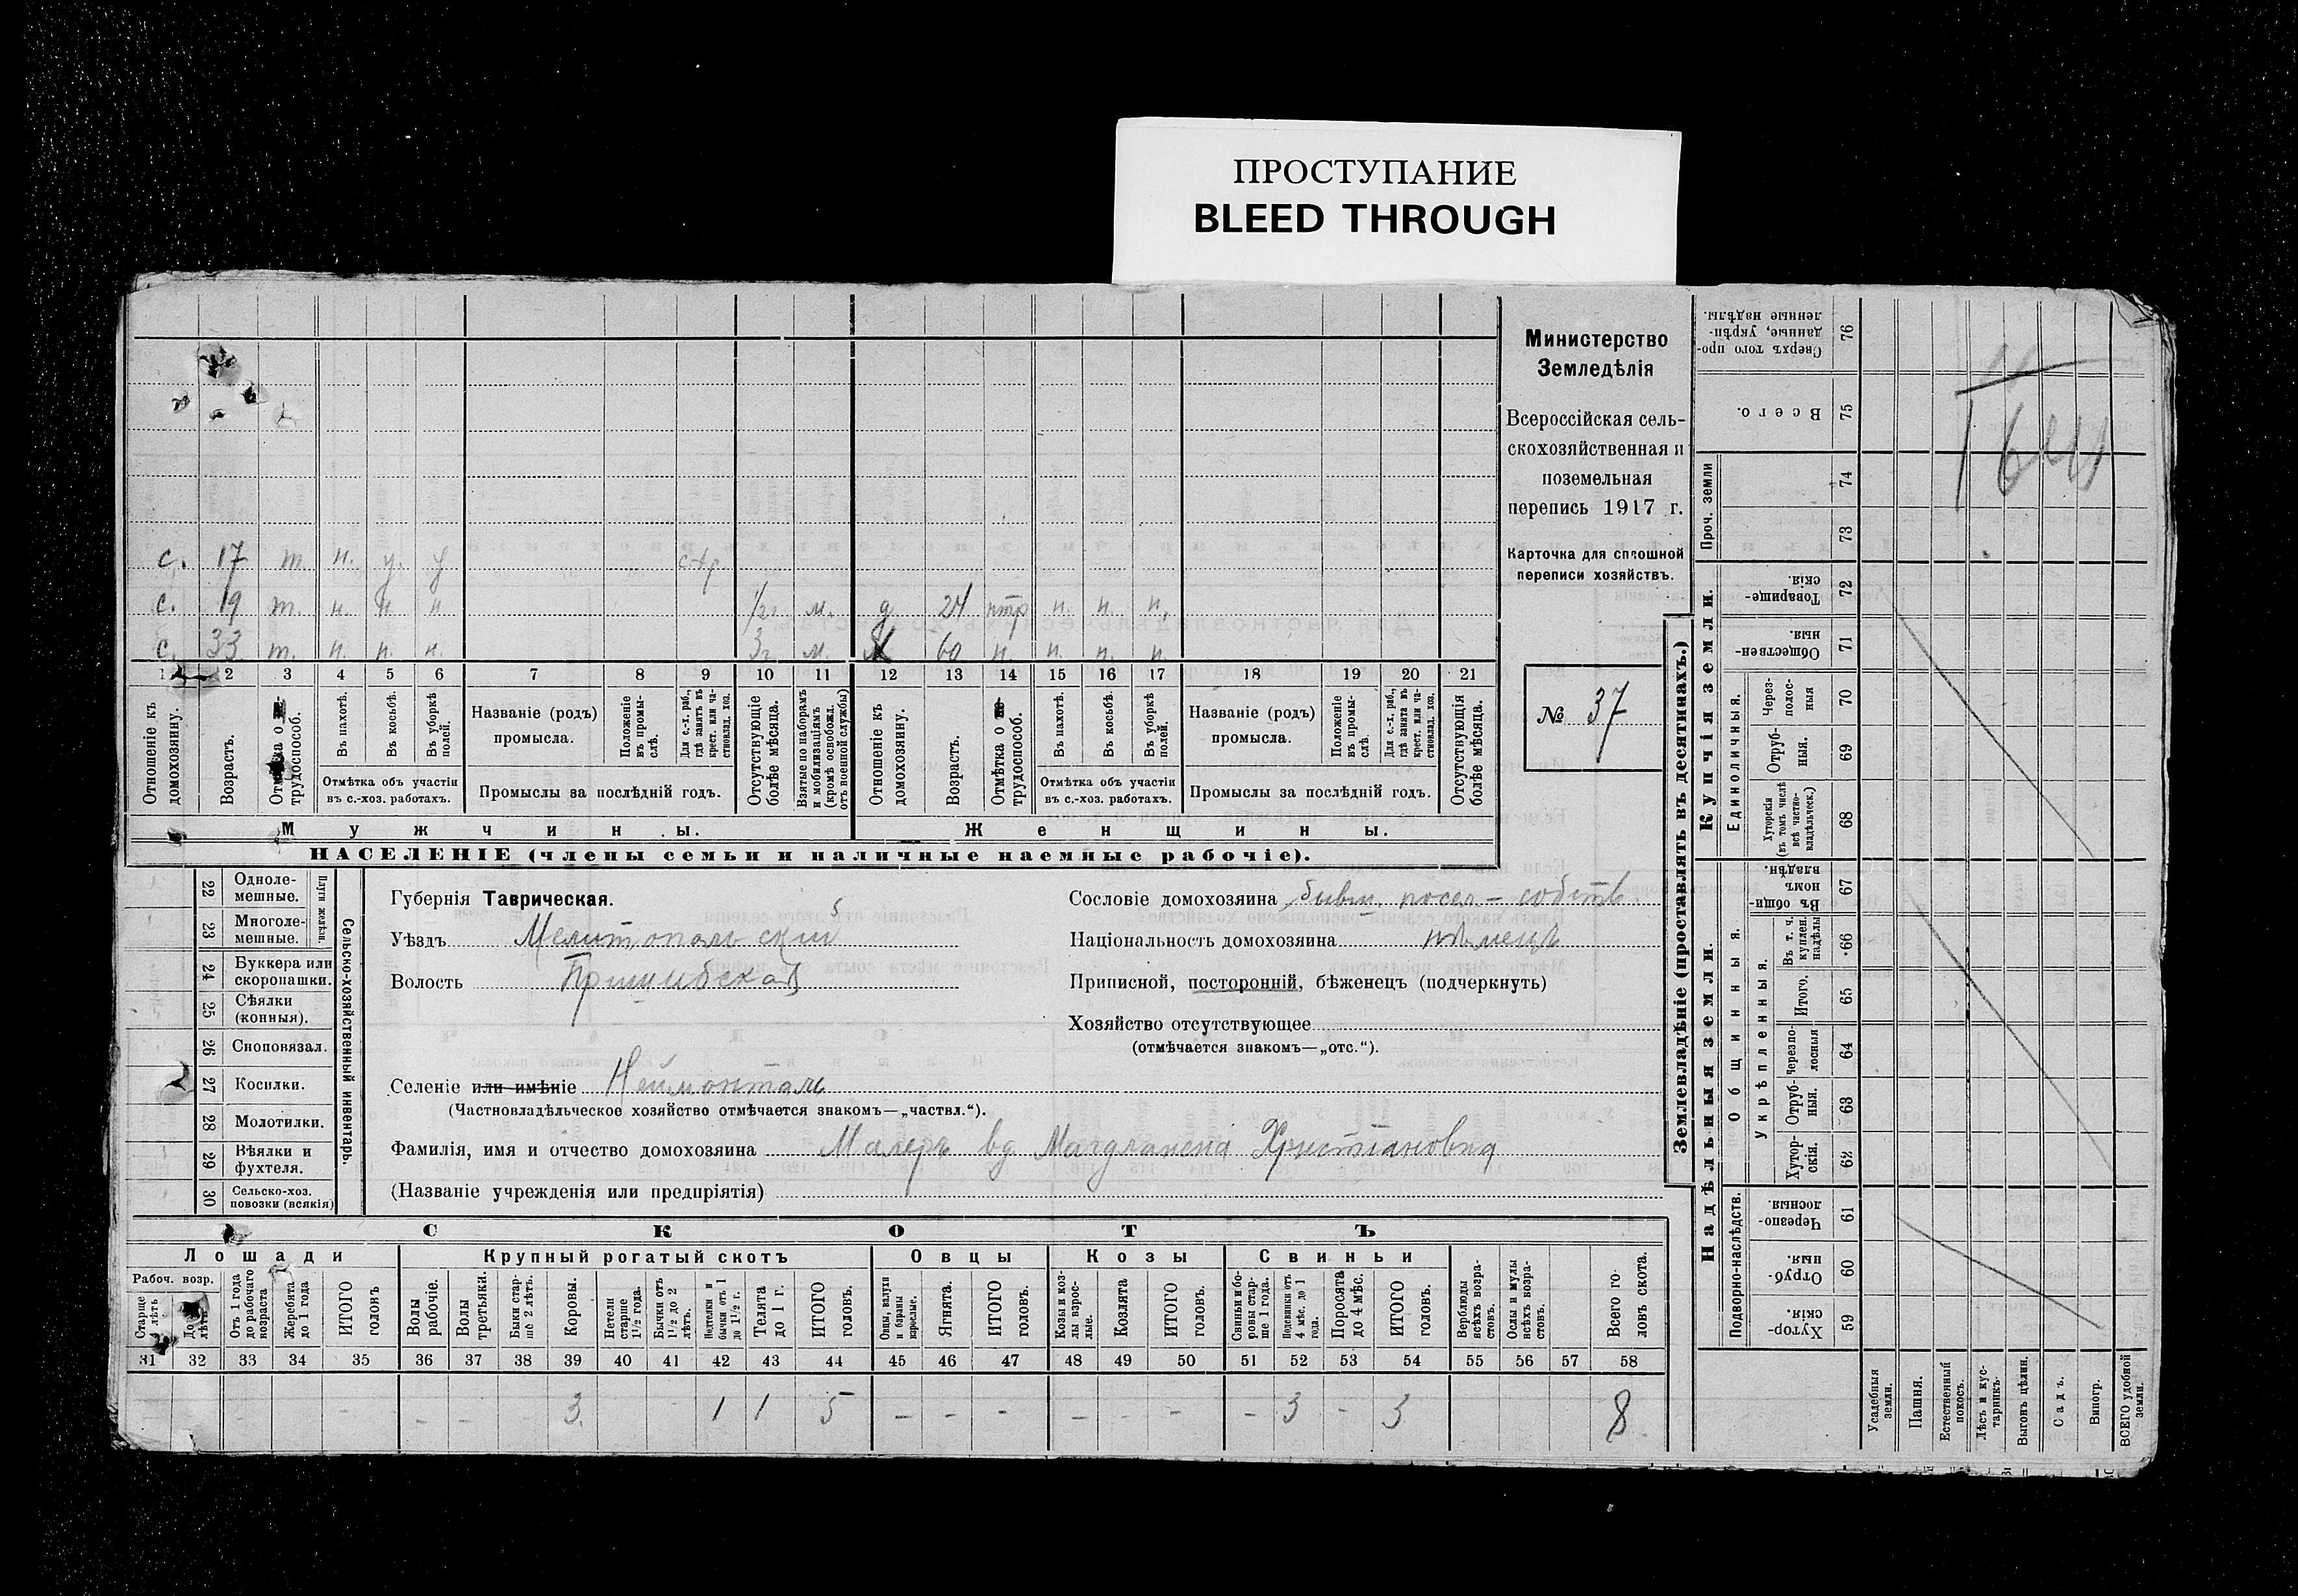 ПРОСТУПАНИЕ
BLEED THROUGH
с. 17 т. н. у. у стр
с. 19 т. н. н. н 1/2 г м. д 24 нтр н. н. н.
с. 33 т. н. н. н. 3 г м. М 60 н. н. н. н.
1 2 3 4 5 6 7 8 9 10 11 12 13 14 15 16 17 18 19 20 21
Отношеніе къ домохозяину.
Возрастъ.
Отмѣтка о трудоспособ.
Въ пахотѣ.
Въ косьбѣ.
Въ уборкѣ полей.
Отмѣтка объ участіи въ с.-хоз. работахъ.
Названіе (родъ) промысла.
Положеніе въ промыслѣ.
Для с.-х. раб., гдѣ занятъ въ крест. или частновлад. хоз.
Промыслы за послѣдній годъ.
Отсутствующіе болѣе мѣсяца.
Взятые по наборамъ и мобилизаціямъ (кромѣ освобожд. отъ военной службы)
Отношеніе къ домохозяину.
Возрастъ.
Отмѣтка о трудоспособ.
Въ пахотѣ.
Въ косьбѣ.
Въ уборкѣ полей.
Отмѣтка объ участіи въ с.-хоз. работахъ.
Названіе (родъ) промысла.
Положеніе въ промыслѣ.
Для с.-х. раб., гдѣ занята въ крест. или частновлад. хоз.
Промыслы за послѣдній годъ.
Отсутствующія болѣе мѣсяца.
Мужчины.
Женщины.
НАСЕЛЕНІЕ (члены семьи и наличные наемные рабочіе).
Министерство
Земледѣлія
Всероссійская сель-
скохозяйственная и
поземельная
перепись 1917 г.
Карточка для сплошной
переписи хозяйствъ.
№ 37
22 Одноле-мешные.
23 Многоле-мешные.
Плуги желѣзн.
24 Буккера или скоропашки.
25 Сѣялки (конныя).
26 Сноповязал.
27 Косилки.
28 Молотилки.
29 Вѣялки и фухтеля.
30 Сельско-хоз. повозки (всякія)
Сельско-хозяйственный инвентарь.
Губернія Таврическая.
Уѣздъ Мелитопольскій
Волость Пришибская
Селеніе или имѣніе Неймонталь
(Частновладѣльческое хозяйство отмѣчается знакомъ—„частвл.“).
Фамилія, имя и отчество домохозяина Малеръ вд. Магдалена Христіановна
(Названіе учрежденія или предпріятія)
Сословіе домохозяина бывш. посел – собств.
Національность домохозяина нѣмецъ
Приписной, посторонній, бѣженецъ (подчеркнуть)
Хозяйство отсутствующее
(отмѣчается знакомъ—„отс.“).
СКОТЪ
Лошади
Крупный рогатый скотъ
Овцы
Козы
Свиньи
Рабоч. возр.
Старше 4 лѣтъ
До лѣтъ
Отъ 1 года до рабочаго возраста
Жеребята до 1 года
ИТОГО головъ
Волы рабочіе.
Волы третьяки.
Быки старше 2 лѣтъ.
Коровы.
Нетели старше 1 1/2 года.
Бычки отъ 1 1/2 до 2 лѣтъ.
Подтелки и бычки отъ 1 до 1 1/2 г.
Телята до 1 г.
ИТОГО головъ.
Овцы, валухи и бараны взрослые.
Ягнята.
ИТОГО головъ.
Козы и козлы взрослые.
Козлята
ИТОГО головъ.
Свиньи и боровы старше 1 года.
Подсвинки отъ 4 мѣс. до 1 года.
Поросята до 4 мѣс.
ИТОГО головъ.
Верблюды всѣхъ возрастовъ.
Ослы и мулы всѣхъ возрастовъ.
Всего головъ скота.
31 32 33 34 35 36 37 38 39 40 41 42 43 44 45 46 47 48 49 50 51 52 53 54 55 56 57 58
- - - 3. - 1 1 5 - - - - - - - 3 - 3 8
Землевладѣніе (проставлять въ десятинахъ.)
Купчія земли.
Надѣльныя земли.
Сверхъ того проданные, укрѣпленные надѣлы. 76
Всего. 75
Проч. земли 74
73
Товарищескія. 72
Общественныя. 71
Единоличныя.
Черезполосныя 70
Отрубныя. 69
Хуторскія (въ томъ числѣ всѣ частновладѣльческ.) 68
Общинныя.
Въ общинномъ владѣн. 67
Укрѣпленныя.
Въ т. ч. куплен. надѣлы 66
Итого. 65
Черезполосныя 64
Отрубныя. 63
Хуторскія. 62
Подворно-наслѣдств.
Черезполосныя. 61
Отрубныя. 60
Хуторскія. 59
Усадебныя земли.
Пашня.
Естественный покосъ.
Лѣсъ и кустарникъ.
Выгонъ цѣлин.
Садъ.
Виногр.
ВСЕГО удобной земли.